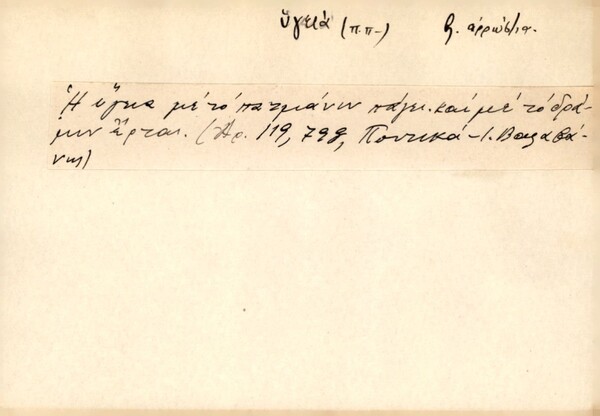 ὑγειά (π.π-) β. ἀρρώστια.
Ἡ ὕγεια μέ τό πατμάνιν πάγει καί μέ τό δρά-
μιν ἔρται. (Ἀρ. 119, 798, Ποντικά - Ι. Βαλαβά-
νης)